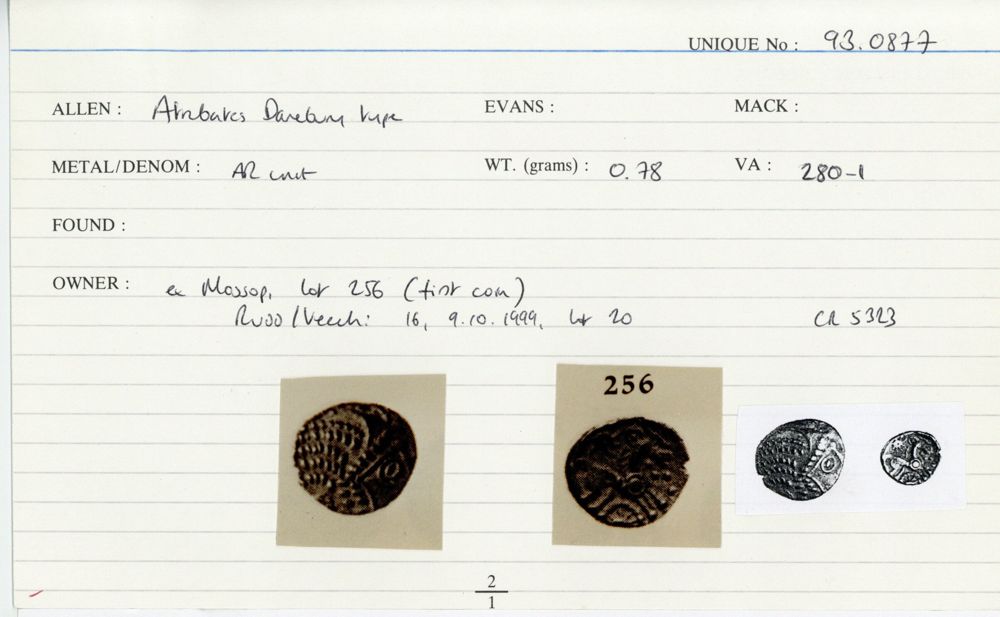 UNIQUE No : 93.0877
ALLEN : Atrebates Danebury type EVANS : MACK :
METAL/DENOM : AR unit WT. (grams) : 0.78 VA : 280-1
FOUND :
OWNER : ex Mossop, lot 256 (first coin)
Rudd / Vecchi 16, 9.10.1999, lot 20 CR 5323
256
2
1